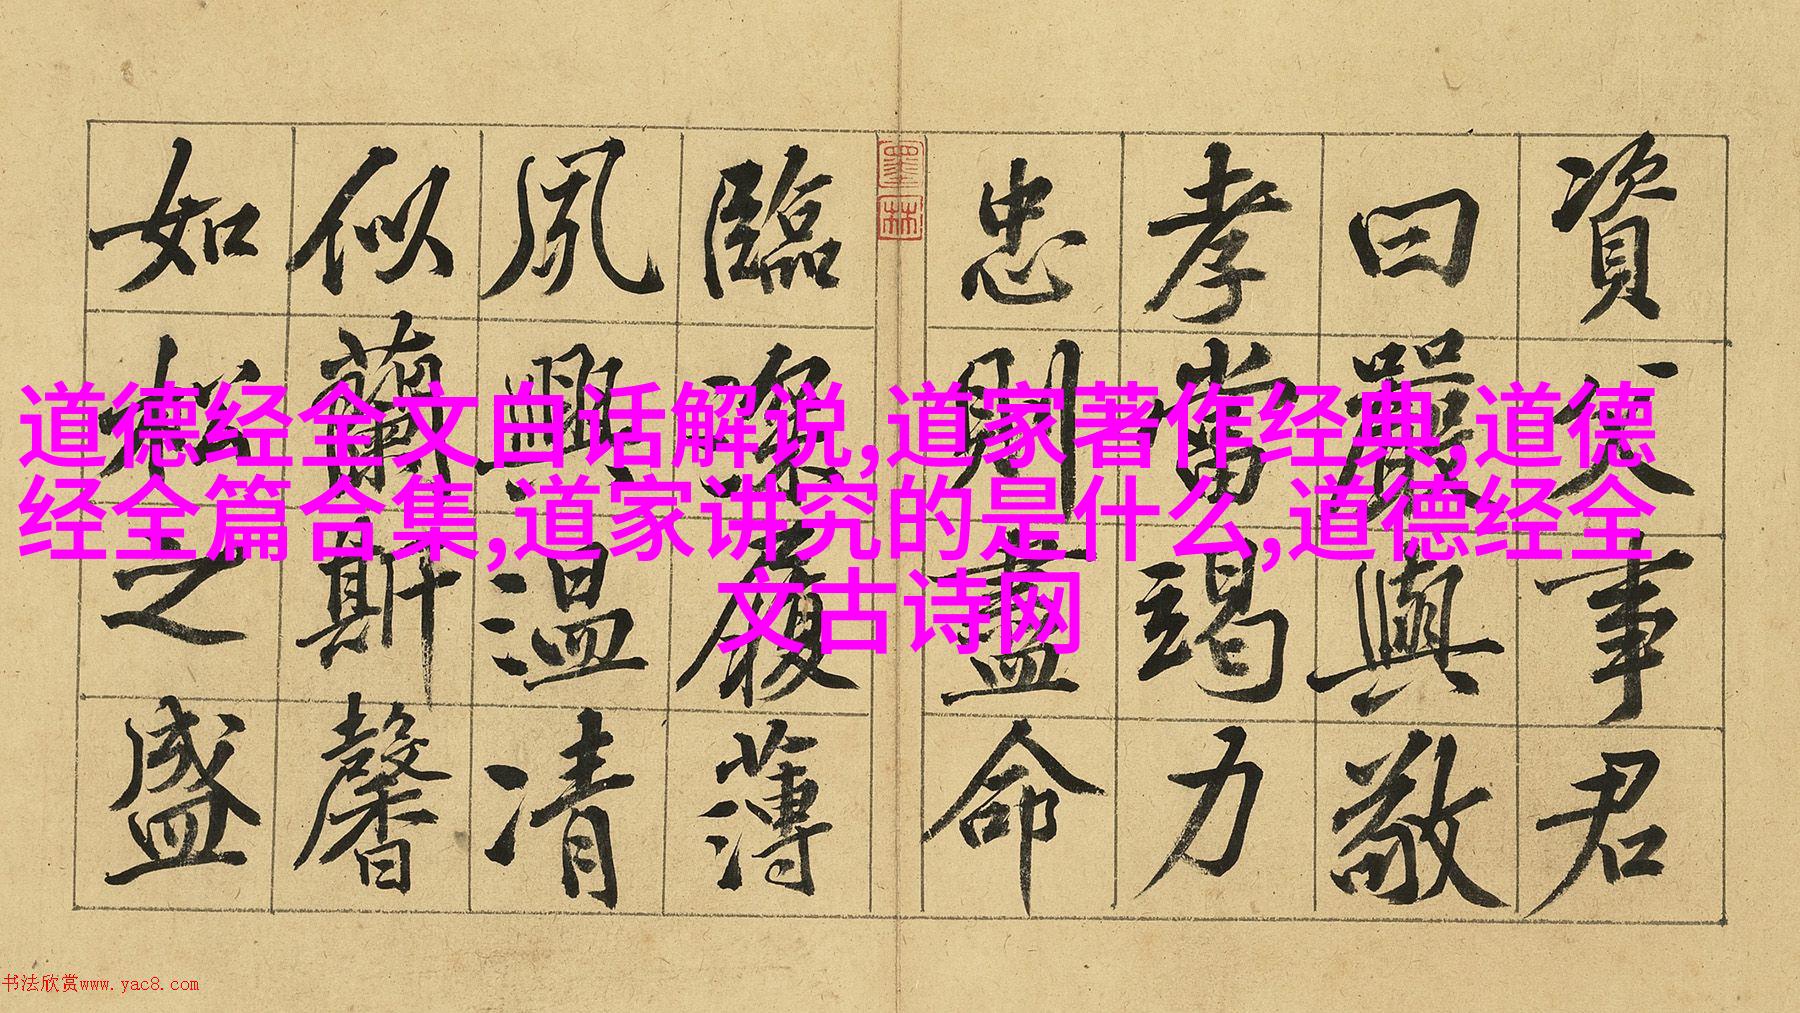 資父事君
曰嚴與敬
孝當竭力
忠則盡命
墨林
臨深履薄
夙興溫凊
似蘭斯馨
如松之盛
道德经全文白话解说,道家著作经典,道德
经全篇合集,道家讲究的是什么,道德经全
文古诗网
书法欣赏www.yac8.com